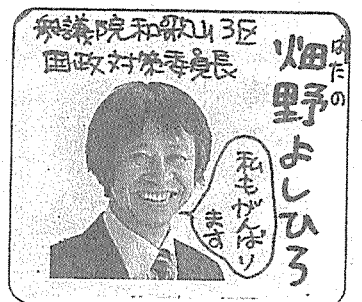 衆議院和歌山3区
国政対策委員長
はたの
畑野よしひろ
私もがんばり
ます